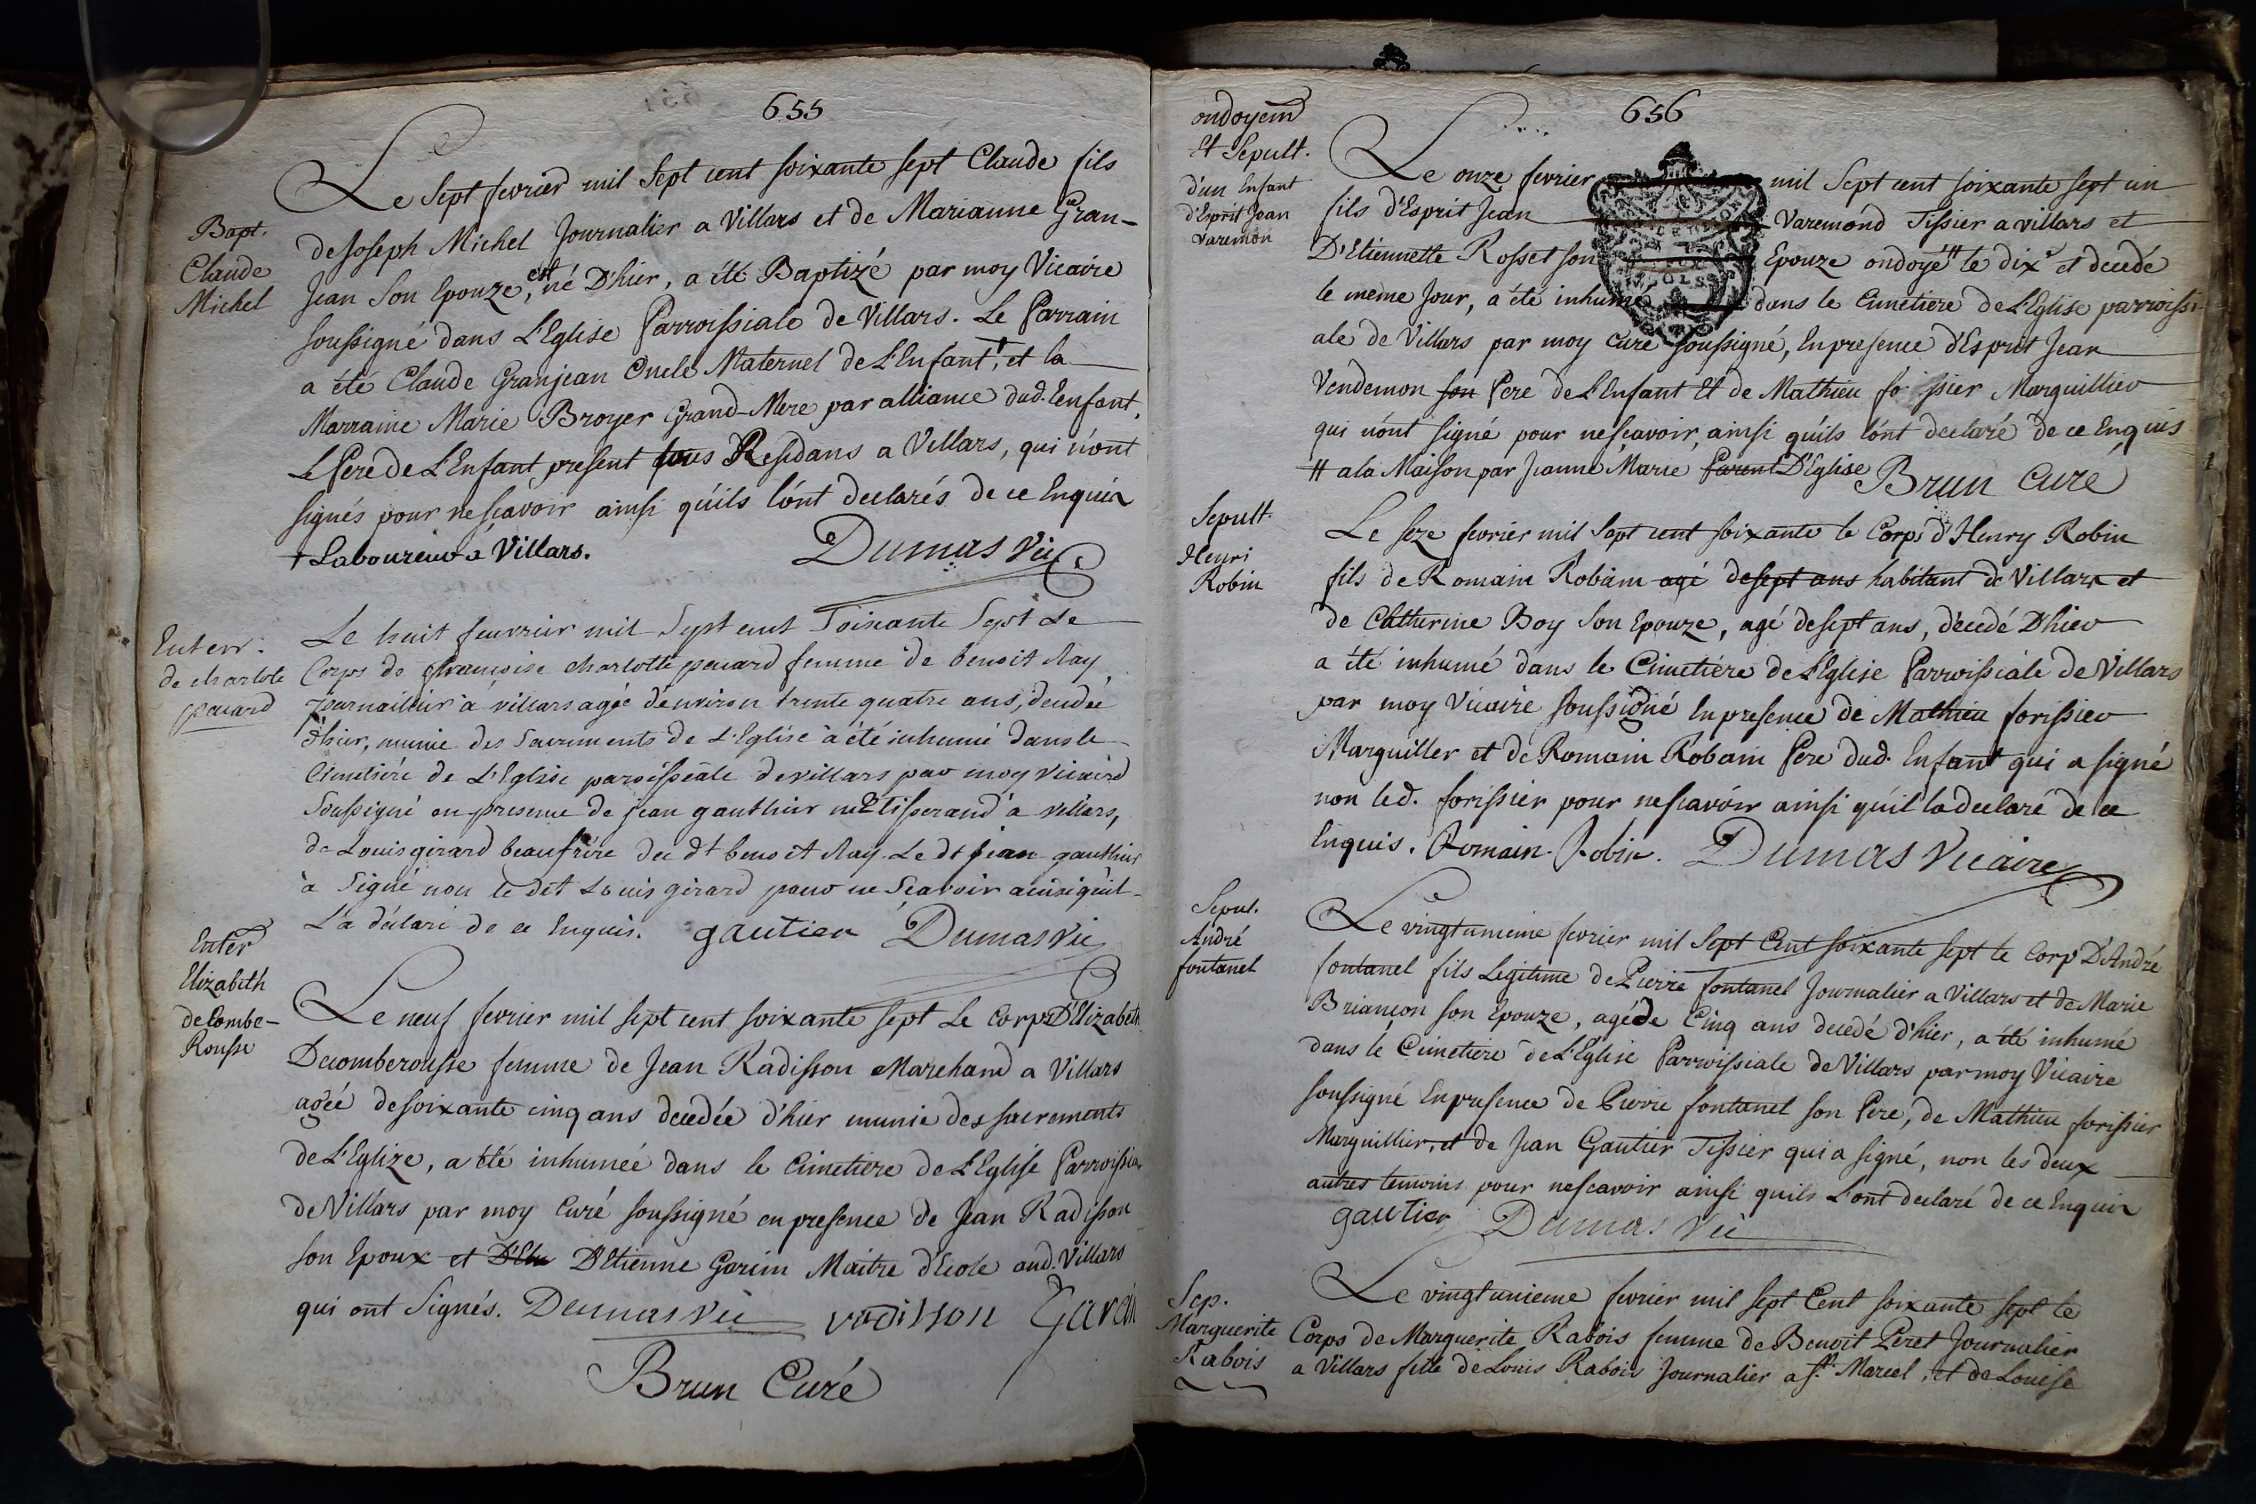 655
Bapt.
Claude
Michel
Le Sept fevrier mil Sept cent soixante sept Claude fils
de Joseph Michel Journalier a Villars et de Marianne Gran-
Jean Son Epouze, est né D'hier, a été Baptizé par moy Vicaire
soussigné dans L'Eglise Parroissiale de Villars. Le Parrain
a été Claude Granjean Oncle Maternel de L'Enfant †, et la
Marraine Marie Broyer Grand-Mere par alliance dud. Enfant,
Le Pere de L'Enfant present tous Residans a Villars, qui n'ont
signés pour ne sçavoir ainsi qu'ils l'ónt declarés de ce Enquis
† Laboureur a Villars. Dumas Vic
Enterr.
de charlote
pauard
Le huit feuvrier mil Sept cent Soixante Sept Le
Corps de françoise charlotte pauard femme de benoit Ray,
journailier à villars agée d'environ trente quatre ans, decedée
d'hier, munie des Sacrements de L'Eglise à été inhumé dans le
Cimetiére de L'Eglise paroissiale de villars par moy vicaire
Soussigné en presence de jean gauthier me tisserand à villars,
de Louis girard beaufrére du dt benoit Ray. Le dt jean gauthier
à Signé non le dit Louis girard pour ne Scavoir ainsi qu'il
L'a déclaré de ce Enquis. gautier Dumas Vic
Enter
Elizabeth
de Combe-
Rousse
Le neuf fevrier mil sept cent soixante sept Le corps D'Elizabeth
Decomberousse femme de Jean Radisson Marchand a Villars
agée de soixante cinq ans decedée d'hier munie des sacrements
de L'Eglize, a été inhumée dans le Cimetiere de L'Eglise Parroissia
de Villars par moy Curé soussigné en presence de Jean Radisson
son Epoux et D'Etie D'Etienne Garin Maitre d'Ecole aud. Villars
qui ont Signés. Dumas Vic radisson Garin
Brun Curé
656
ondoyem
Et Sepult.
d'un Enfant
d'Esprit Jean
Varemon
Le onze fevrier mil Sept cent soixante sept un
fils d'Esprit Jean Varemond Tissier a villars et
D'Etiennette Rosset son Epouze ondoyé # le dix et decedé
le meme Jour, a été inhumé dans le Cimetiere de L'Eglise parroissi-
ale de Villars par moy curé soussigné, En presence d'Esprit Jean
Vendemon son Pere de L'Enfant Et de Mathieu forissier Marguillier
qui n'ónt signé pour ne sçavoir, ainsi qu'ils l'ónt declaré de ce Enquis
# a la Maison par Jeanne Marie Parent D'Eglise Brun Curé
Sepult.
Henri
Robin
Le seze fevrier mil Sept cent soixante le Corps d'Henry Robin
fils de Romain Robain agé de sept ans habitant de Villars et
de Catherine Boy Son Epouze, agé de sept ans, décedé D'hier
a été inhumé dans le Cimetiére de L'Eglise Parroissiale de Villars
par moy Vicaire soussigné En presence de Mathieu forissier
Marguiller et de Romain Robain Pere dud. Enfant qui a signé
non led. forissier pour ne scavóir ainsi qu'il la declaré de ce
Enquis. Romain Robin. Dumas Vicaire
Sepul.
André
fontanel
Le vingtunieme fevrier mil Sept Cent soixante sept le Corps D'André
fontanel fils Legitime de Pierre fontanel Journalier a Villars et de Marie
Briançon son Epouze, agé de Cinq ans decedé d'hier, a été inhumé
dans le Cimetiere de L'Eglise Parroissiale de Villars par moy Vicaire
soussigné En presence de Pierre fontanel son Pere, de Mathieu forissier
Marguillier, et de Jean Gautier Tissier qui a signé, non les deux
autres temoins pour ne scavoir ainsi quils L'ont declaré de ce Enquis
gautier Dumas Vic
Sep.
Marguerite
Rabois
Le vingtunieme fevrier mil sept Cent soixante sept le
Corps de Marguerite Rabois femme de Benoit Peret Journalier
a Villars fille de Louis Rabois Journalier a St. Marcel, et de Louise